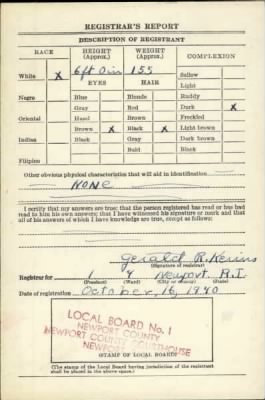 REGISTRAR'S REPORT
DESCRIPTION OF REGISTRANT
RACE HEIGHT (Approx.) WEIGHT (Approx.) COMPLEXION
White X 6 ft 0 in 155 Sallow
EYES HAIR Light
Negro Blue Blonde Ruddy
Gray Red Dark X
Oriental Hazel Brown Freckled
Brown X Black X Light brown
Indian Black Gray Dark brown
Bald Black
Filipino
Other obvious physical characteristics that will aid in identification
NONE
I certify that my answers are true; that the person registered has read or has had read to him his own answers; that I have witnessed his signature or mark and that all of his answers of which I have knowledge are true, except as follows:
Gerald R.
(Signature of registrar)
Registrar for 1 4 Newport R.I.
(Precinct) (Ward) (City or county) (State)
Date of registration October, 16, 1940
LOCAL BOARD No. 1
NEWPORT COUNTY
NEWPORT COUNTY COURTHOUSE
NEWPORT
(STAMP OF LOCAL BOARD)
(The stamp of the Local Board having jurisdiction of the registrant
shall be placed in the above space.)